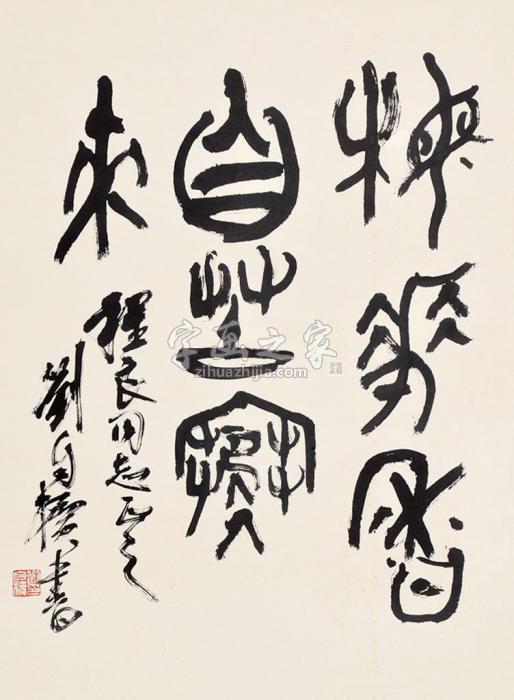 梅華香
自苦寒
來
程良同志正之
劉自櫝書
字画之家
zihuazhijia.com